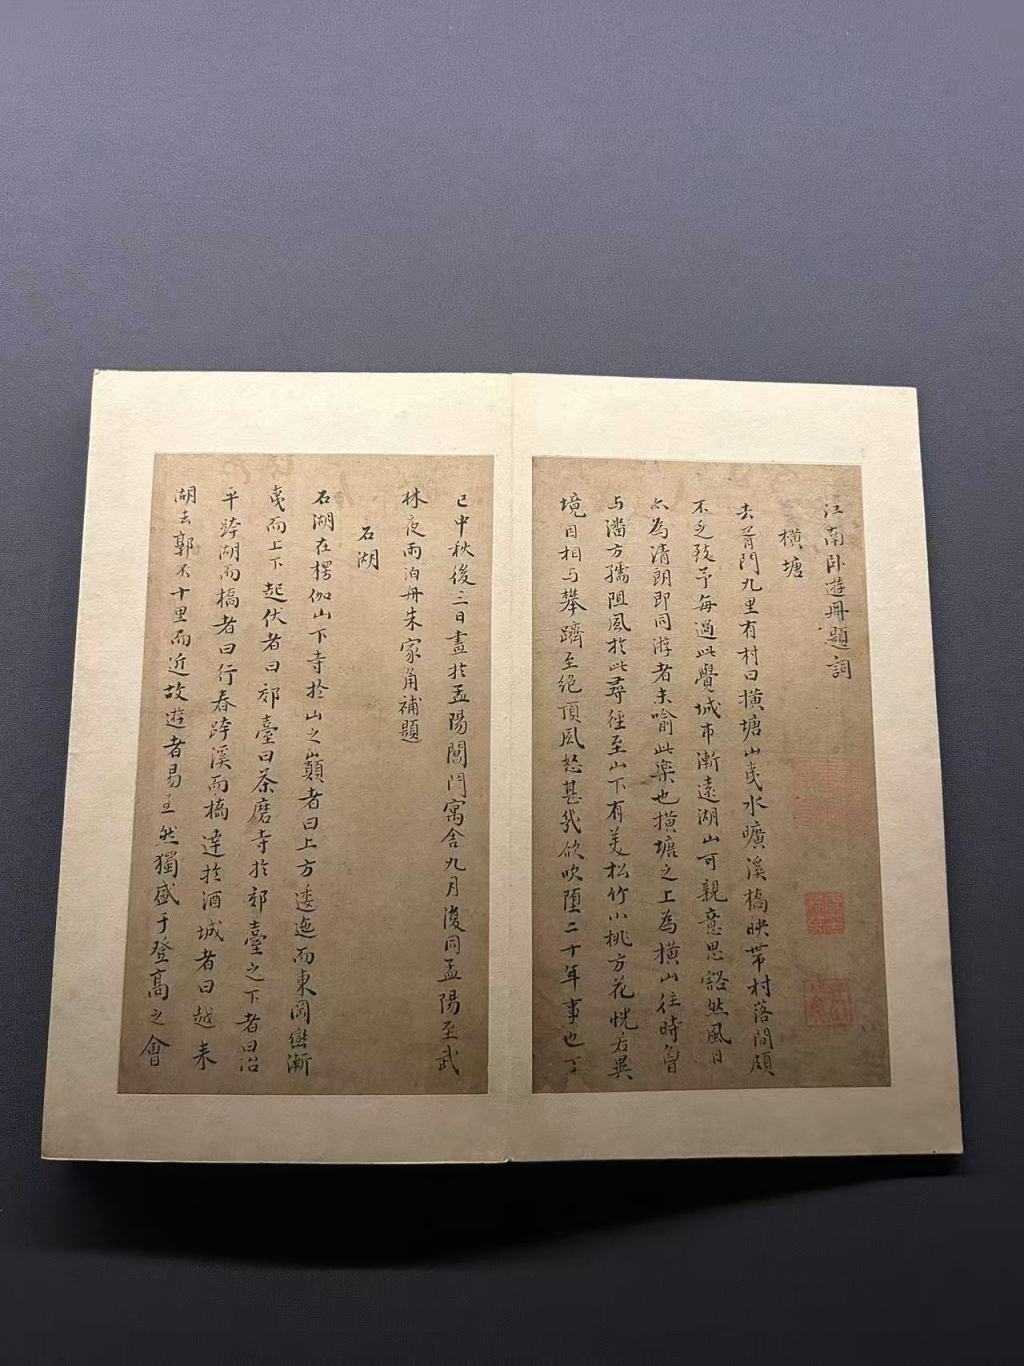 江南卧遊冊題詞
橫塘
去胥門九里有村曰橫塘山夷水曠溪橋映帶村落間頗
不乏致予每過此覺城市漸遠湖山可親意思豁然風日
亦為清朗即同游者未喻此樂也橫塘之上為橫山往時曾
与潘方孺阻風於此尋徑至山下有美松竹小桃方花恍若異
境因相与攀躋至絕頂風怒甚幾欲吹墮二十年事也丁
巳中秋後三日畫於孟陽閶門寓舍九月復同孟陽至武
林夜雨泊舟朱家角補題
石湖
石湖在楞伽山下寺於山之巔者曰上方逶迤而東岡巒漸
夷而上下起伏者曰郊臺曰茶磨寺於郊臺之下者曰治
平跨湖而橋者曰行春跨溪而橋達於酒城者曰越来
湖去郭不十里而近故遊者易至然獨盛于登高之會